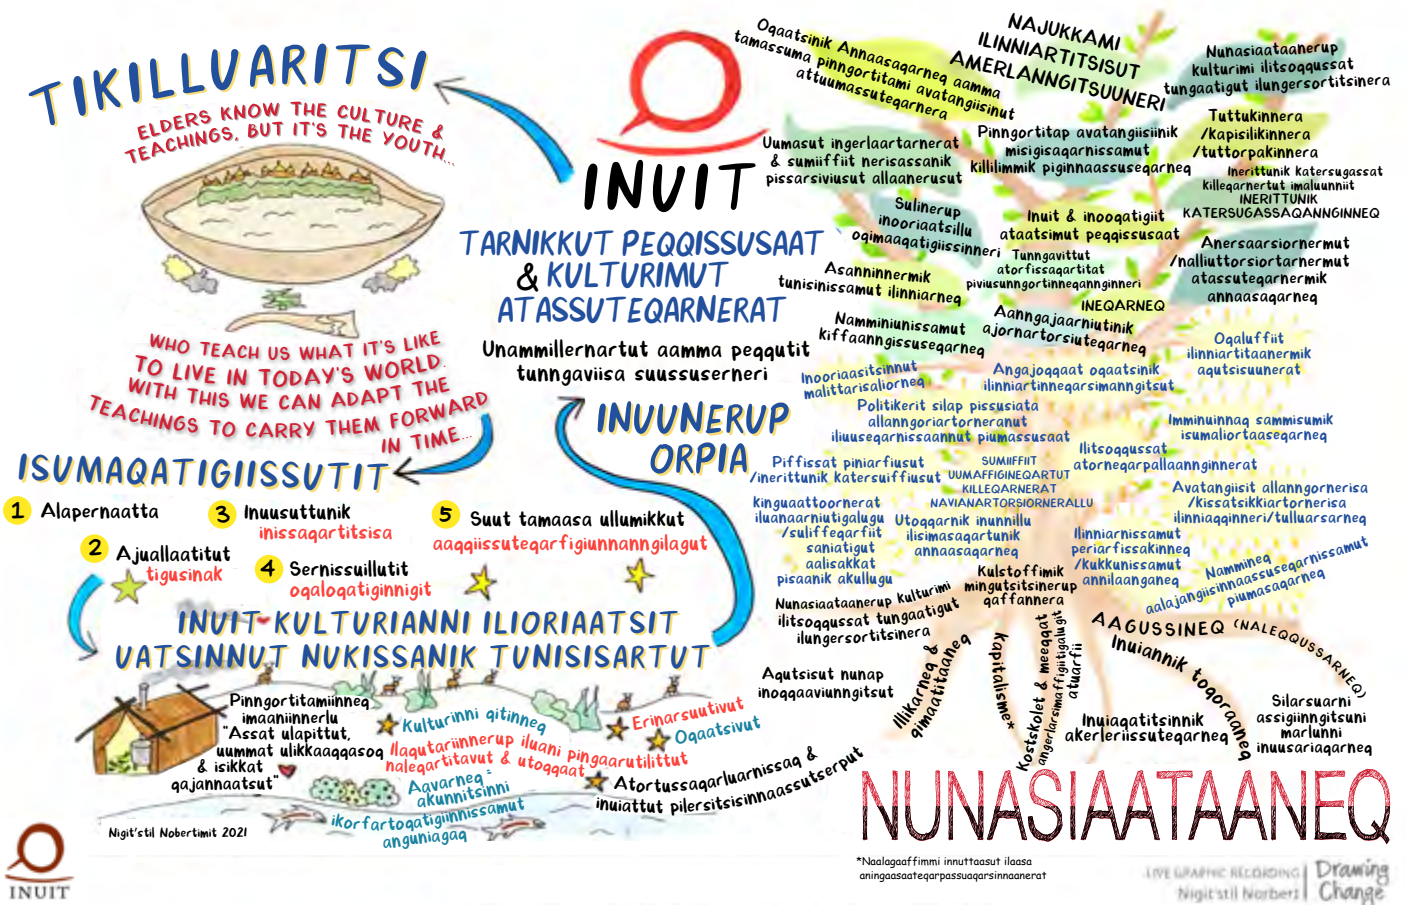 TIKILLUARITSI
ELDERS KNOW THE CULTURE &
TEACHINGS, BUT IT'S THE YOUTH...
WHO TEACH US WHAT IT'S LIKE
TO LIVE IN TODAY'S WORLD.
WITH THIS WE CAN ADAPT THE
TEACHINGS TO CARRY THEM FORWARD
IN TIME...
INUIT
TARNIKKUT PEQQISSUSAAT
& KULTURIMUT
ATASSUTEQARNERAT
Unammillernartut aamma peqqutit
tunngaviisa suussuserneri
INUUNERUP
ORPIA
ISUMAQATIGIISSUTIT
1 Alapernaatta
2 Ajuallaatitut
tigusinak
3 Inuusuttunik
inissaqartitsisa
4 Sernissuillutit
oqaloqatiginnigit
5 Suut tamaasa ullumikkut
aaqqiissuteqarfigiunnanngilagut
INUIT KULTURIANNI ILIORIAATSIT
UATSINNUT NUKISSANIK TUNISISARTUT
Pinngortitamiinneq
imaaniinnerlu
"Assat ulapittut,
uummat ulikkaaqqasoq
& isikkat
qajannaatsut"
Kulturinni qitinneq
Erinarsuutivut
Oqaatsivut
Ilaqutariinnerup iluani pingaarutilittut
naleqartitavut & utoqqaat
Aavarneq
akunnitsinni
ikorfartoqatigiinnissamut
anguniagaq
Atortussaqarluarnissaq &
inuiattut pilersitsisinnaassutserput
Nigit'stil Nobertimit 2021
INUIT
Oqaatsinik Annaasaqarneq aamma
tamassuma pinngortitami avatangiisinut
attuumassuteqarnera
NAJUKKAMI
ILINNIARTITSISUT
AMERLANNGITSUUNERI
Nunasiaataanerup
kulturimi ilitsoqqussat
tungaatigut ilungersortitsinera
Uumasut ingerlaartarnerat
& sumiiffiit nerisassanik
pissarsiviusut allaanerusut
Pinngortitap avatangiisiinik
misigisaqarnissamut
killilimmik piginnaassuseqarneq
Tuttukinnera
/kapisilikinnera
/tuttorpakinnera
Inerittunik katersugassat
killeqarnertut imaluunniit
INERITTUNIK
KATERSUGASSAQANNGINNEQ
Sulinerup
inooriaatsillu
oqimaaqatigiissinneri
Inuit & inooqatigiit
ataatsimut peqqissusaat
Anersaarsiornermut
/nalliuttorsiortarnermut
atassuteqarnermik
annaasaqarneq
Asanninnermik
tunisinissamut ilinniarneq
Tunngavittut
atorfissaqartitat
piviusunngortinneqannginneri
INEQARNEQ
Namminiunissamut
kiffaanngissuseqarneq
Aanngajaarniutinik
ajornartorsiuteqarneq
Oqaluffiit
ilinniartitaanermik
aqutsisuunerat
Inooriaasitsinnut
malittarisaliorneq
Angajoqqaat oqaatsinik
ilinniartinneqarsimanngitsut
Politikerit silap pissusiata
allanngoriartorneranut
iliuuseqarnissaannut piumassusaat
Imminuinnaq sammisumik
isumaliortaaseqarneq
Ilitsoqqussat
atorneqarpallaannginnerat
Piffissat piniarfiusut
/inerittunik katersuiffiusut
SUMIIFFIIT
UUMAFFIGINEQARTUT
KILLEQARNERAT
NAVIANARTORSIORNERALLU
Avatangiisit allanngornerisa
/kissatsikkiartornerisa
ilinniaqqinneri/tulluarsarneq
kinguaattoornerat
iluanaarniutigalugu
/suliffeqarfiit
saniatigut
aalisakkat
pisaanik akullugu
Utoqqarnik inunnillu
ilisimasaqartunik
annaasaqarneq
Ilinniarnissamut
periarfissakinneq
/kukkunissamut
annilaanganeq
Nammineq
aalajangiisinnaassuseqarnissamut
piumasaqarneq
Nunasiaataanerup kulturimi
ilitsoqqussat tungaatigut
ilungersortitsinera
Kulstoffimik
mingutsitsinerup
qaffannera
Aqutsisut nunap
inoqqaaviunngitsut
Illikarneq &
qimaatitaaneq
Kapitalisme*
Kostskolet & meeqqat
angerlarsimaffigiitigalugit
atuarfii
AAGUSSINEQ (NALEQQUSSARNEQ)
Inuiannik toqoraaneq
Inuiaqatitsinnik
akerleriissuteqarneq
Silarsuarni
assigiinngitsuni
marlunni
inuusariaqarneq
NUNASIAATAANEQ
*Naalagaaffimmi innuttaasut ilaasa
aningaasaateqarpassuaqarsinnaanerat
LIVE GRAPHIC RECORDING
Nigit'stil Norbert
Drawing
Change